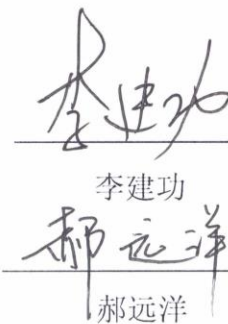 李建功
李建功
郝远洋
郝远洋